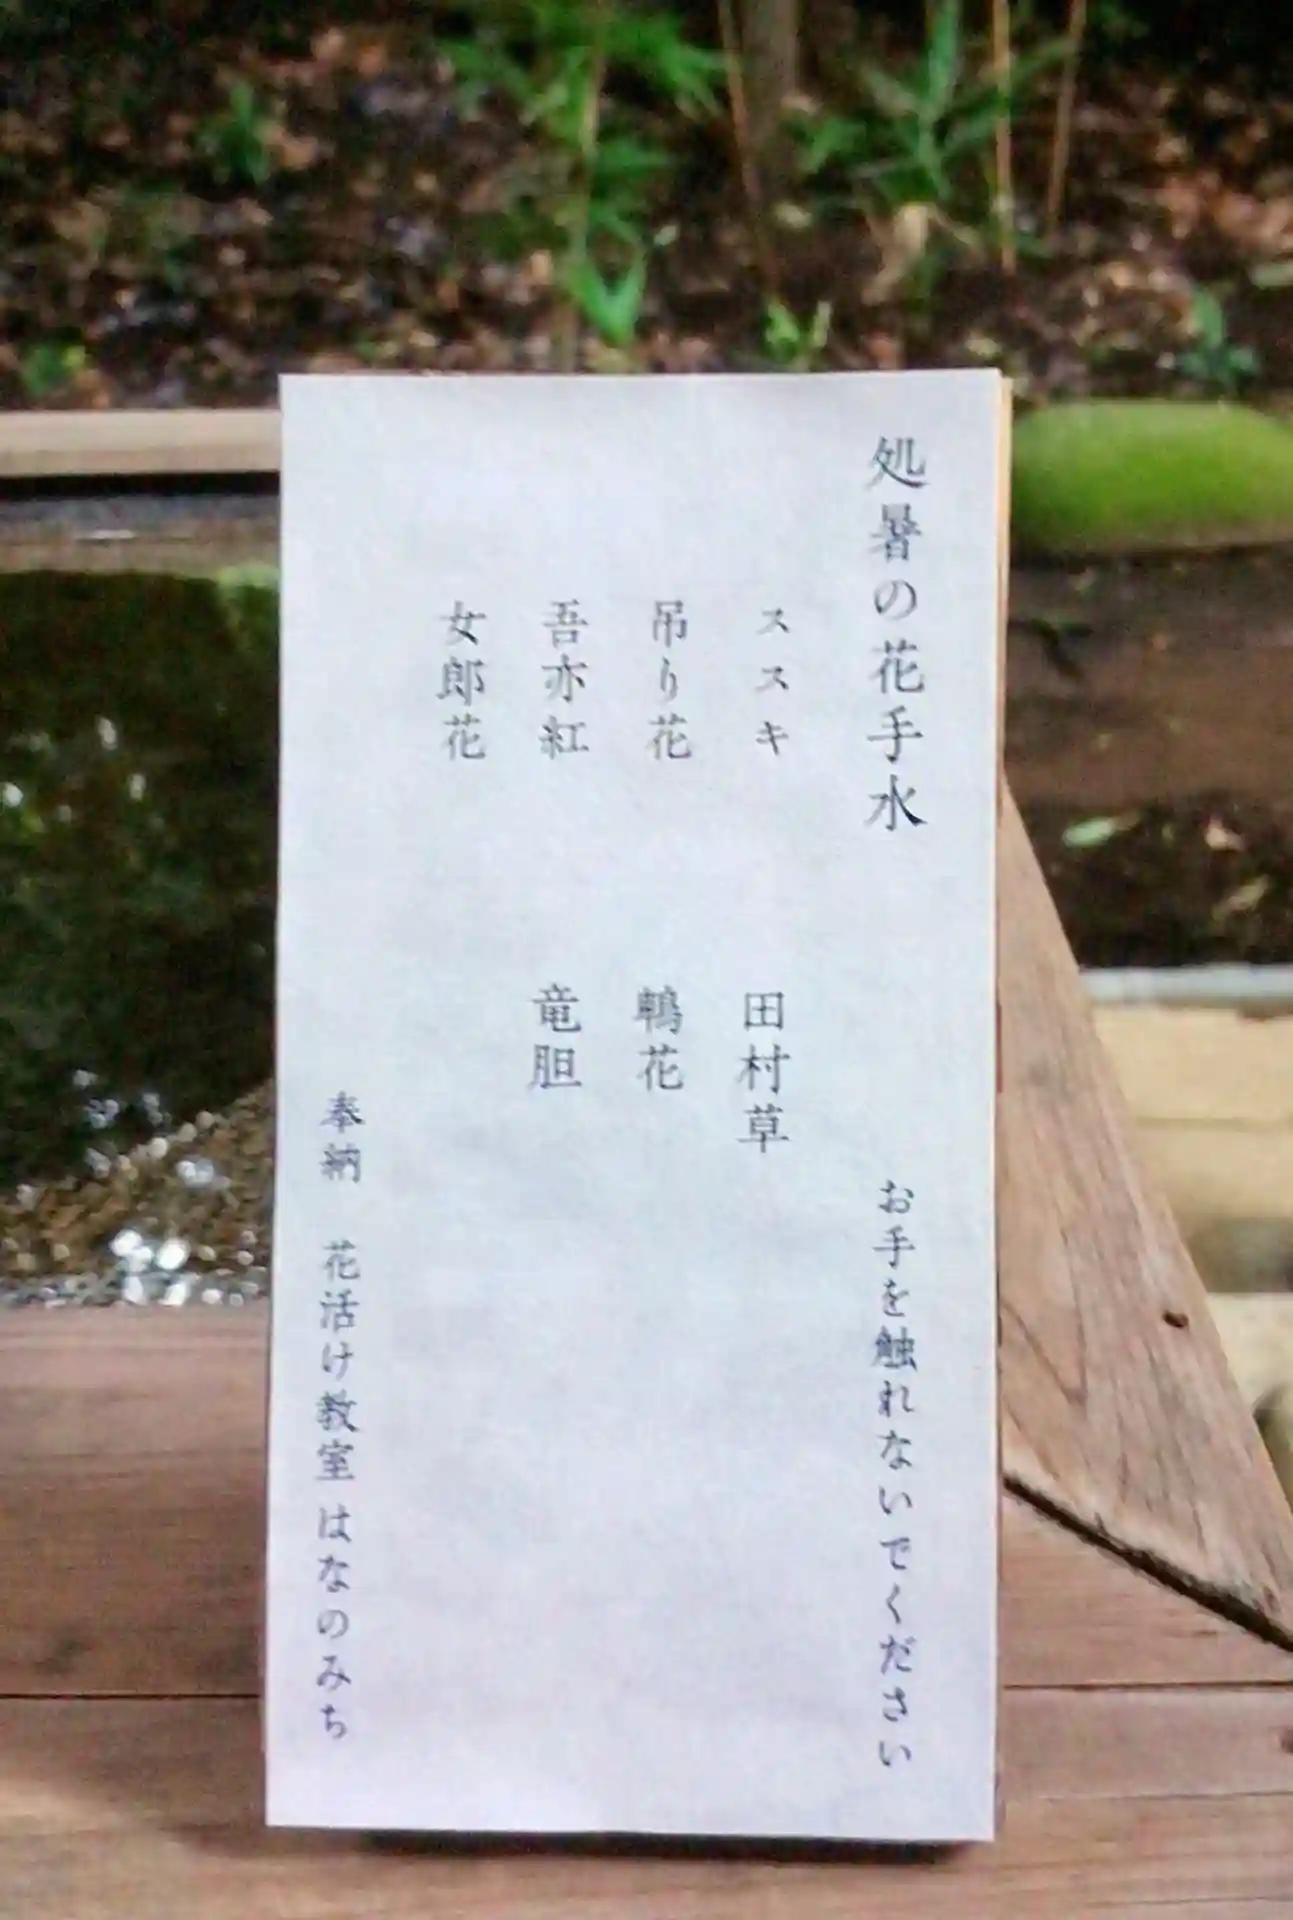 処暑の花手水
お手を触れないでください
ススキ
田村草
吊り花
鶤花
吾亦紅
竜胆
女郎花
奉納 花活け教室 はなのみち